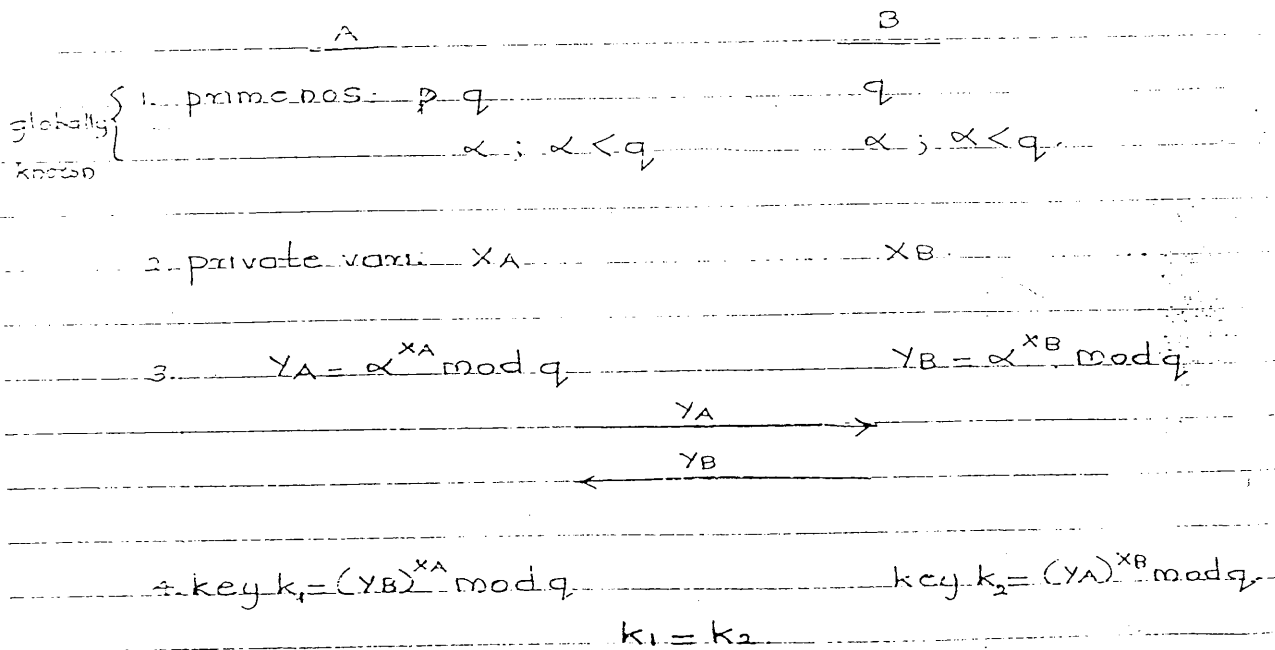 A B
globally 1. prime nos: p q q
known α ; α < q α ; α < q.
2. private vari. XA XB
3. YA = α^XA mod q YB = α^XB mod q
YA
YB
4. key k₁ = (YB)^XA mod q key k₂ = (YA)^XB mod q
k1 = k2